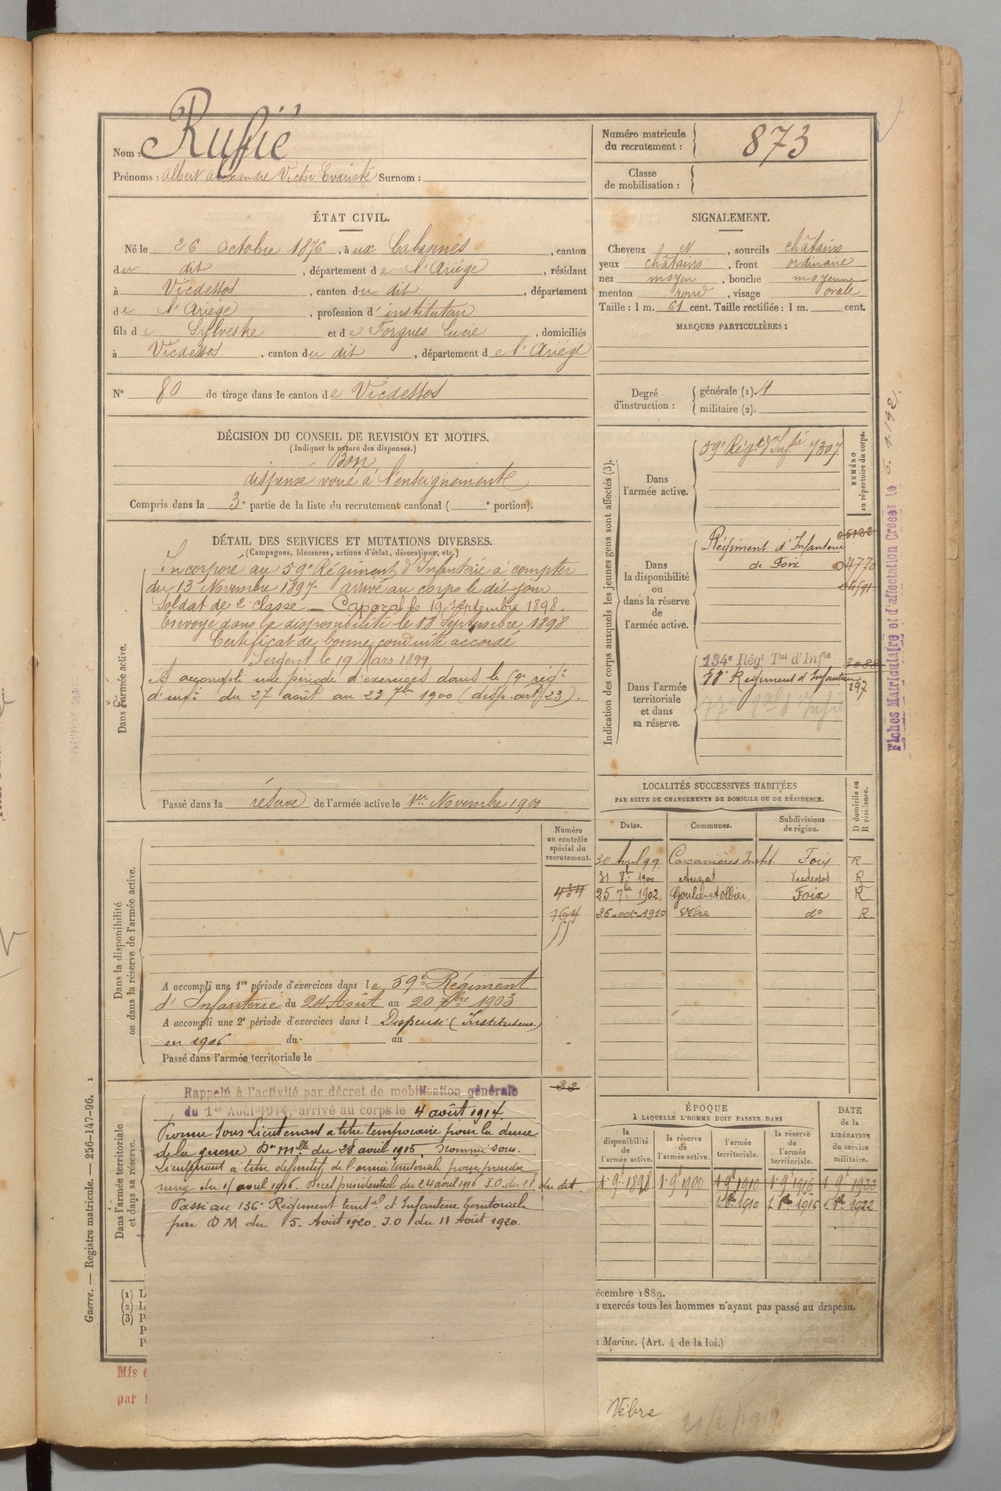 Nom : Rufié
Prénoms : Albert Alexandre Victor Evariste Surnom :
Numéro matricule du recrutement : 873
Classe de mobilisation :
ÉTAT CIVIL.
Né le 26 Octobre 1876, à ux Cabannes, canton
du dit, département de l'Ariège, résidant
à Vicdessos, canton du dit, département
de l'Ariège, profession d'instituteur
fils de Sylvestre et de Forgues Lucie, domiciliés
à Vicdessos, canton du dit, département de l'Ariège
N° 80 de tirage dans le canton de Vicdessos
SIGNALEMENT.
Cheveux N, sourcils châtains
yeux châtains, front ordinaire
nez moyen, bouche moyenne
menton rond, visage ovale
Taille : 1 m. 61 cent. Taille rectifiée : 1 m. cent.
MARQUES PARTICULIÈRES :
Degré d'instruction : générale (1). 4
militaire (2).
DÉCISION DU CONSEIL DE REVISION ET MOTIFS.
(Indiquer la nature des dispenses.)
Bon
dispensé voué à l'enseignement
Compris dans la 3e partie de la liste du recrutement cantonal ( e portion).
DÉTAIL DES SERVICES ET MUTATIONS DIVERSES.
(Campagnes, blessures, actions d'éclat, décorations, etc.)
Dans l'armée active.
Incorporé au 59e Régiment d'Infanterie à compter
du 13 Novembre 1897. arrivé au corps le dit jour
Soldat de 2e classe — Caporal le 19 Septembre 1898.
Envoyé dans la disponibilité le 18 Septembre 1898
Certificat de bonne conduite accordé
Sergent le 19 Mars 1899
A accompli une période d'exercices dans le 59e régt
d'infie du 27 août au 23 7bre 1900 (disp. art. 23).
Passé dans la réserve de l'armée active le 1er Novembre 1900
Indication des corps auxquels les jeunes gens sont affectés (3).
NUMÉRO au répertoire du corps.
Dans l'armée active.
59e Régt d'Infie 7307
Dans la disponibilité ou dans la réserve de l'armée active.
Régiment d'Infanterie
de Foix
Dans l'armée territoriale et dans sa réserve.
134e Régt Tal d'Infie
Régiment d'Infanterie 197
Fiches Matriculaire et d'affectation Creées le
LOCALITÉS SUCCESSIVES HABITÉES
PAR SUITE DE CHANGEMENTS DE DOMICILE OU DE RÉSIDENCE.
D domicile ou R résidence.
Dates. Communes. Subdivisions de région.
30 Avril 99 Carcanières Instit. Foix R
31 8bre 1900 Auzat Vicdessos R
25 7bre 1902 Goulier et Olbier Foix R
26 oct. 1910 Vèbre do R
Dans la disponibilité ou dans la réserve de l'armée active.
Numéro au contrôle spécial du recrutement.
A accompli une 1re période d'exercices dans le 59e Régiment
d'Infanterie du 24 Août au 20 7bre 1903
A accompli une 2e période d'exercices dans l Dispensé (Instituteur)
en 1906 du au
Passé dans l'armée territoriale le
Dans l'armée territoriale et dans sa réserve.
Rappelé à l'activité par décret de mobilisation générale
du 1er Août 1914, arrivé au corps le 4 août 1914.
Promu Sous Lieutenant a titre temporaire pour la durée
de la guerre Don Mlle du 28 août 1915. Nommé sous.
Lieutenant a titre définitif de l'armée territoriale pour prendre
rang du 11 avril 1916. Décret présidentiel du 24 août 1916 J.O. du 28 du dit
Passé au 136e Régiment territal d'Infanterie territoriale
par D M du 5. Août 1920. J.O. du 11 Août 1920.
ÉPOQUE
À LAQUELLE L'HOMME DOIT PASSER DANS
la disponibilité de l'armée active. la réserve de l'armée active. l'armée territoriale. la réserve de l'armée territoriale.
DATE de la LIBÉRATION du service militaire.
1er 9bre 1898 1er 9bre 1900 1er 9bre 1910 1er 9bre 1916 1er 9bre 1922
1er 8bre 1910 1er 8bre 1916 1er 8bre 1922
(1) L
(2) L
(3) P
P
P
écembre 1889.
exercés tous les hommes n'ayant pas passé au drapeau.
Marine. (Art. 4 de la loi.)
Guerre. — Registre matricule. — 256-147-96. 1
Mis
par
Vèbre